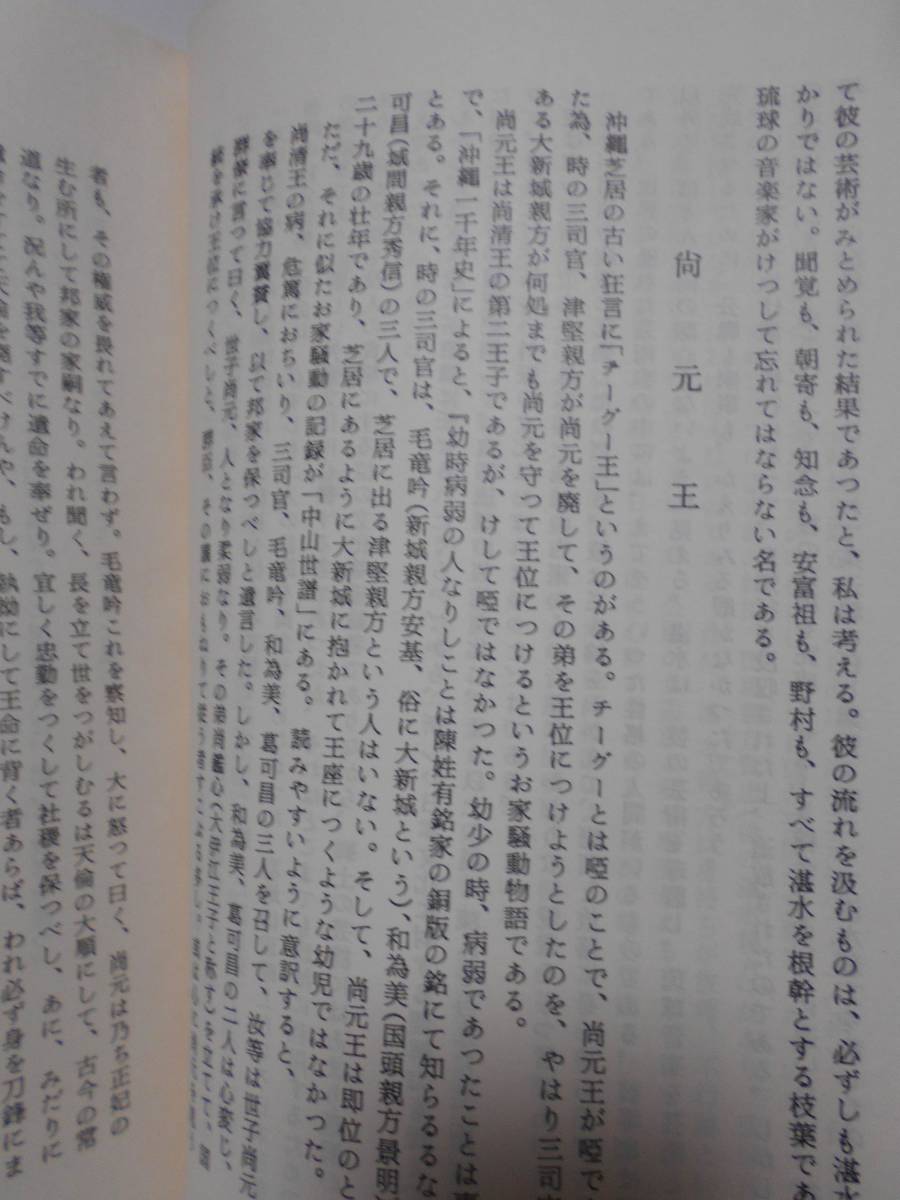 て彼の芸術がみとめられた結果であつたと、私は考える。彼の流れを汲むものは、必ずしも湛水
かりではない。聞覚も、朝寄も、知念も、安富祖も、野村も、すべて湛水を根幹とする枝葉であ
琉球の音楽家がけつして忘れてはならない名である。
尚元王
沖縄芝居の古い狂言に「チーグー王」というのがある。チーグーとは啞のことで、尚元王が啞で
た為、時の三司官、津堅親方が尚元を廃して、その弟を王位につけようとしたのを、やはり三司官
ある大新城親方が何処までも尚元を守って王位につけるというお家騒動物語である。
尚元王は尚清王の第二王子であるが、けして啞ではなかつた。幼少の時、病弱であつたことは
で、「沖縄一千年史」によると、『幼時病弱の人なりしことは陳姓有銘家の銅版の銘にて知らるるな
とある。それに、時の三司官は、毛竜吟(新城親方安基、俗に大新城という)、和為美(国頭親方景明)
可昌(城間親方秀信)の三人で、芝居に出る津堅親方という人はいない。そして、尚元王は即位のと
二十九歳の壮年であり、芝居にあるように大新城に抱かれて王座につくような幼児ではなかつた。
ただ、それに似たお家騒動の記録が「中山世譜」にある。読みやすいように意訳すると、
尚清王の病、危篤におちいり、三司官、毛竜吟、和為美、葛可昌の三人を召して、汝等は世子尚元
を奉じて協力翼賛し、以て邦家を保つべしと遺言した。しかし、和為美、葛可昌の二人は心変し、
群僚に言つて曰く、世子尚元、人となり柔弱なり。その弟尚鑑心(大伊江王子と称す)を立てて、
統を承け王位につくべしと、
者も、その権威を畏れてあえて言わず。毛竜吟これを察知し、大に怒つて曰く、尚元は乃ち正妃の
生む所にして邦家の家嗣なり。われ聞く、長を立て世をつがしむるは天倫の大順にして、古今の常
道なり。況んや我等すでに遺命を奉ぜり。宜しく忠勤をつくして社稷を保つべし、あに、みだりに
すべけんや、もし、執拗にして王命に背く者あらば、われ必ず身を刀鋒にま